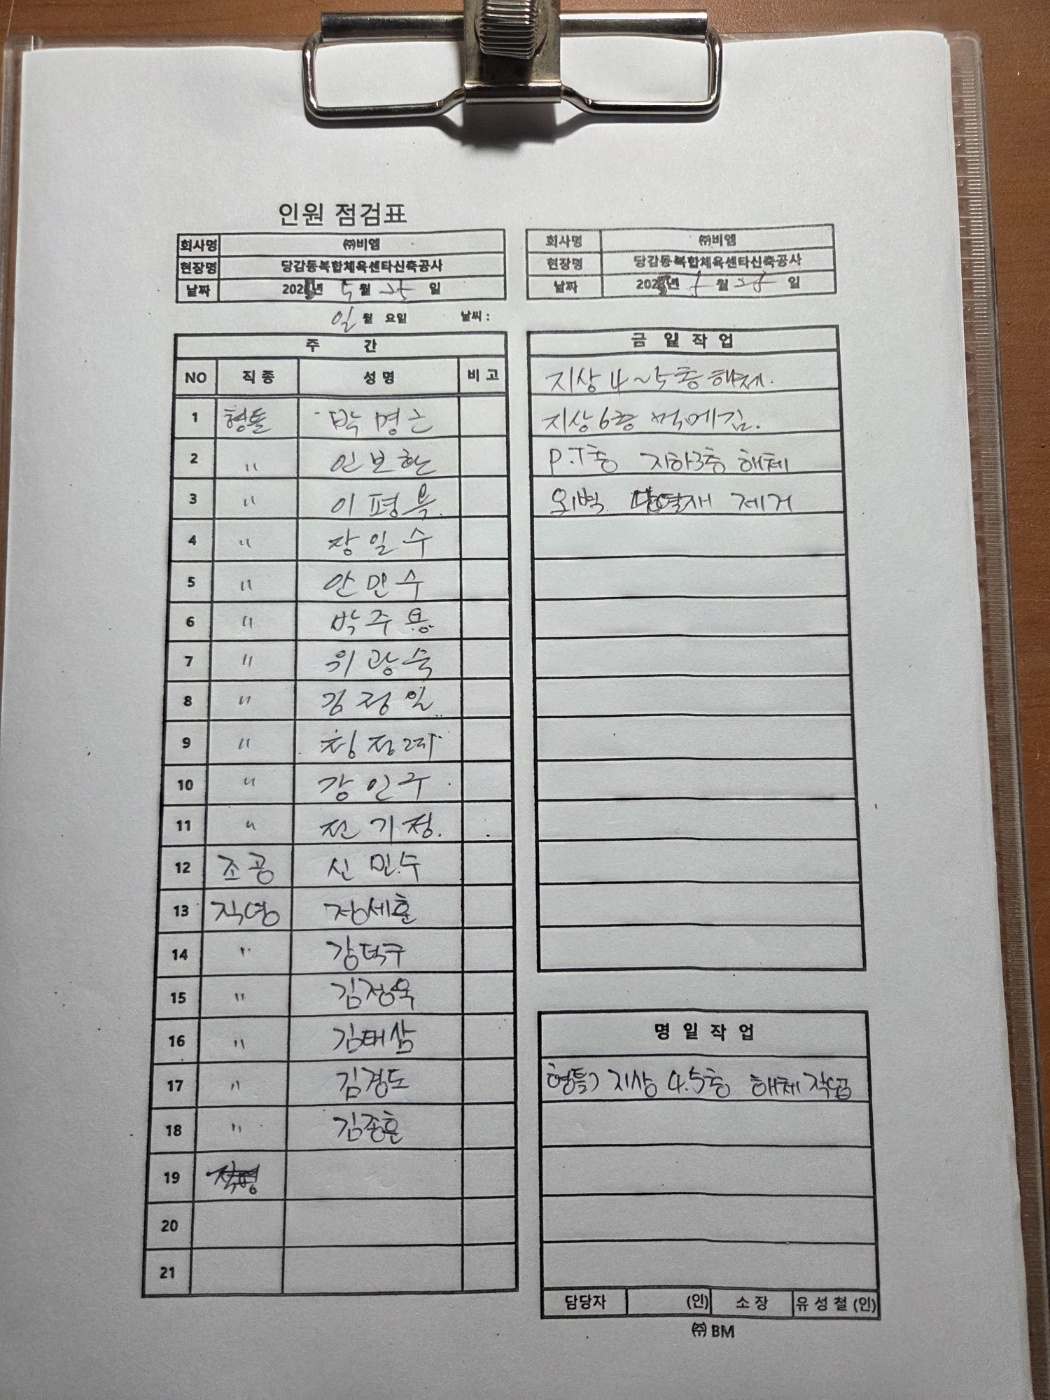 인원 점검표
회사명 ㈜비엠
현장명 당감동복합체육센타신축공사
날짜 202 년 5 월 25 일
일 월 요일 날씨 :
주 간
NO 직종 성명 비고
1 형틀 박명근
2 〃 인보환
3 〃 이평욱
4 〃 장일수
5 〃 안민수
6 〃 박주용
7 〃 위광숙
8 〃 김정일
9 〃
10 〃 강인구
11 〃 전기정
12 조공 신민수
13 직영 정세훈
14 〃 강덕구
15 〃 김정욱
16 〃 김태삼
17 〃 김경도
18 〃 김종훈
19 직영
20
21
회사명 ㈜비엠
현장명 당감동복합체육센타신축공사
날짜 202 년 5 월 25 일
금 일 작 업
지상 4~5층 해체.
지상 6층 먹메김.
P.T층 지하3층 해체
외벽 단열재 제거
명 일 작 업
형틀) 지상 4.5층 해체 작업
담당자 (인) 소 장 유 성 철 (인)
㈜ BM